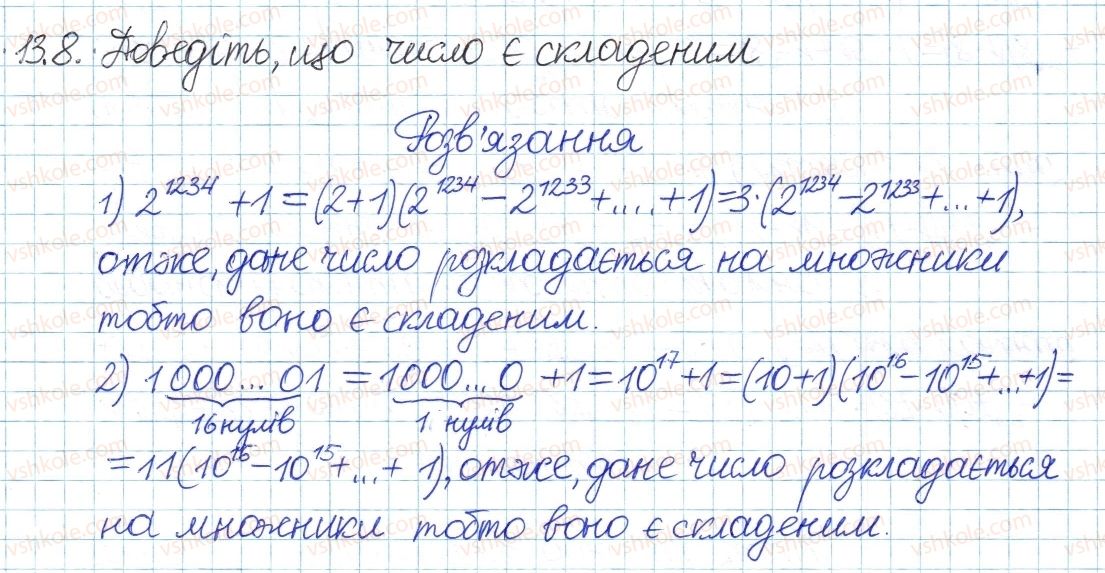 13.8. Доведіть, що число є складеним
Розв'язання
1) 2^1234 + 1 = (2+1)(2^1234 − 2^1233 + .... + 1) = 3·(2^1234 − 2^1233 + ... + 1),
отже, дане число розкладається на множники
тобто воно є складеним.
2) 1000...01 = 1000...0 + 1 = 10^17 + 1 = (10+1)(10^16 − 10^15 + ... + 1) =
16 нулів 1 нулів
= 11(10^16 − 10^15 + ... + 1), отже, дане число розкладається
на множники тобто воно є складеним.